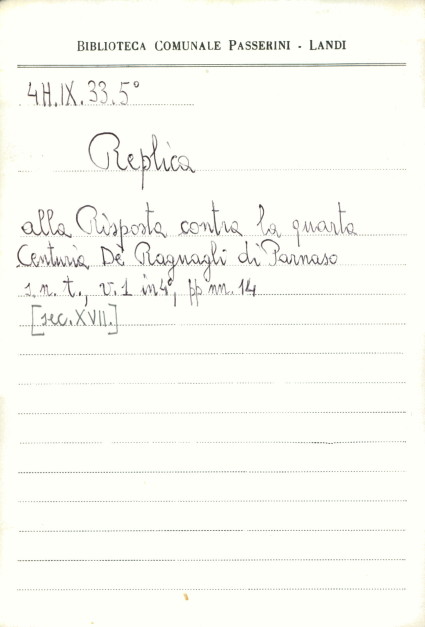 BIBLIOTECA COMUNALE PASSERINI - LANDI
4H.IX.33.5°
Replica
alla Risposta contra la quarta
Centuria De' Ragnagli di Parnaso
s. n. t., v. 1 in 4°, pp nn. 14
[sec. XVII.]